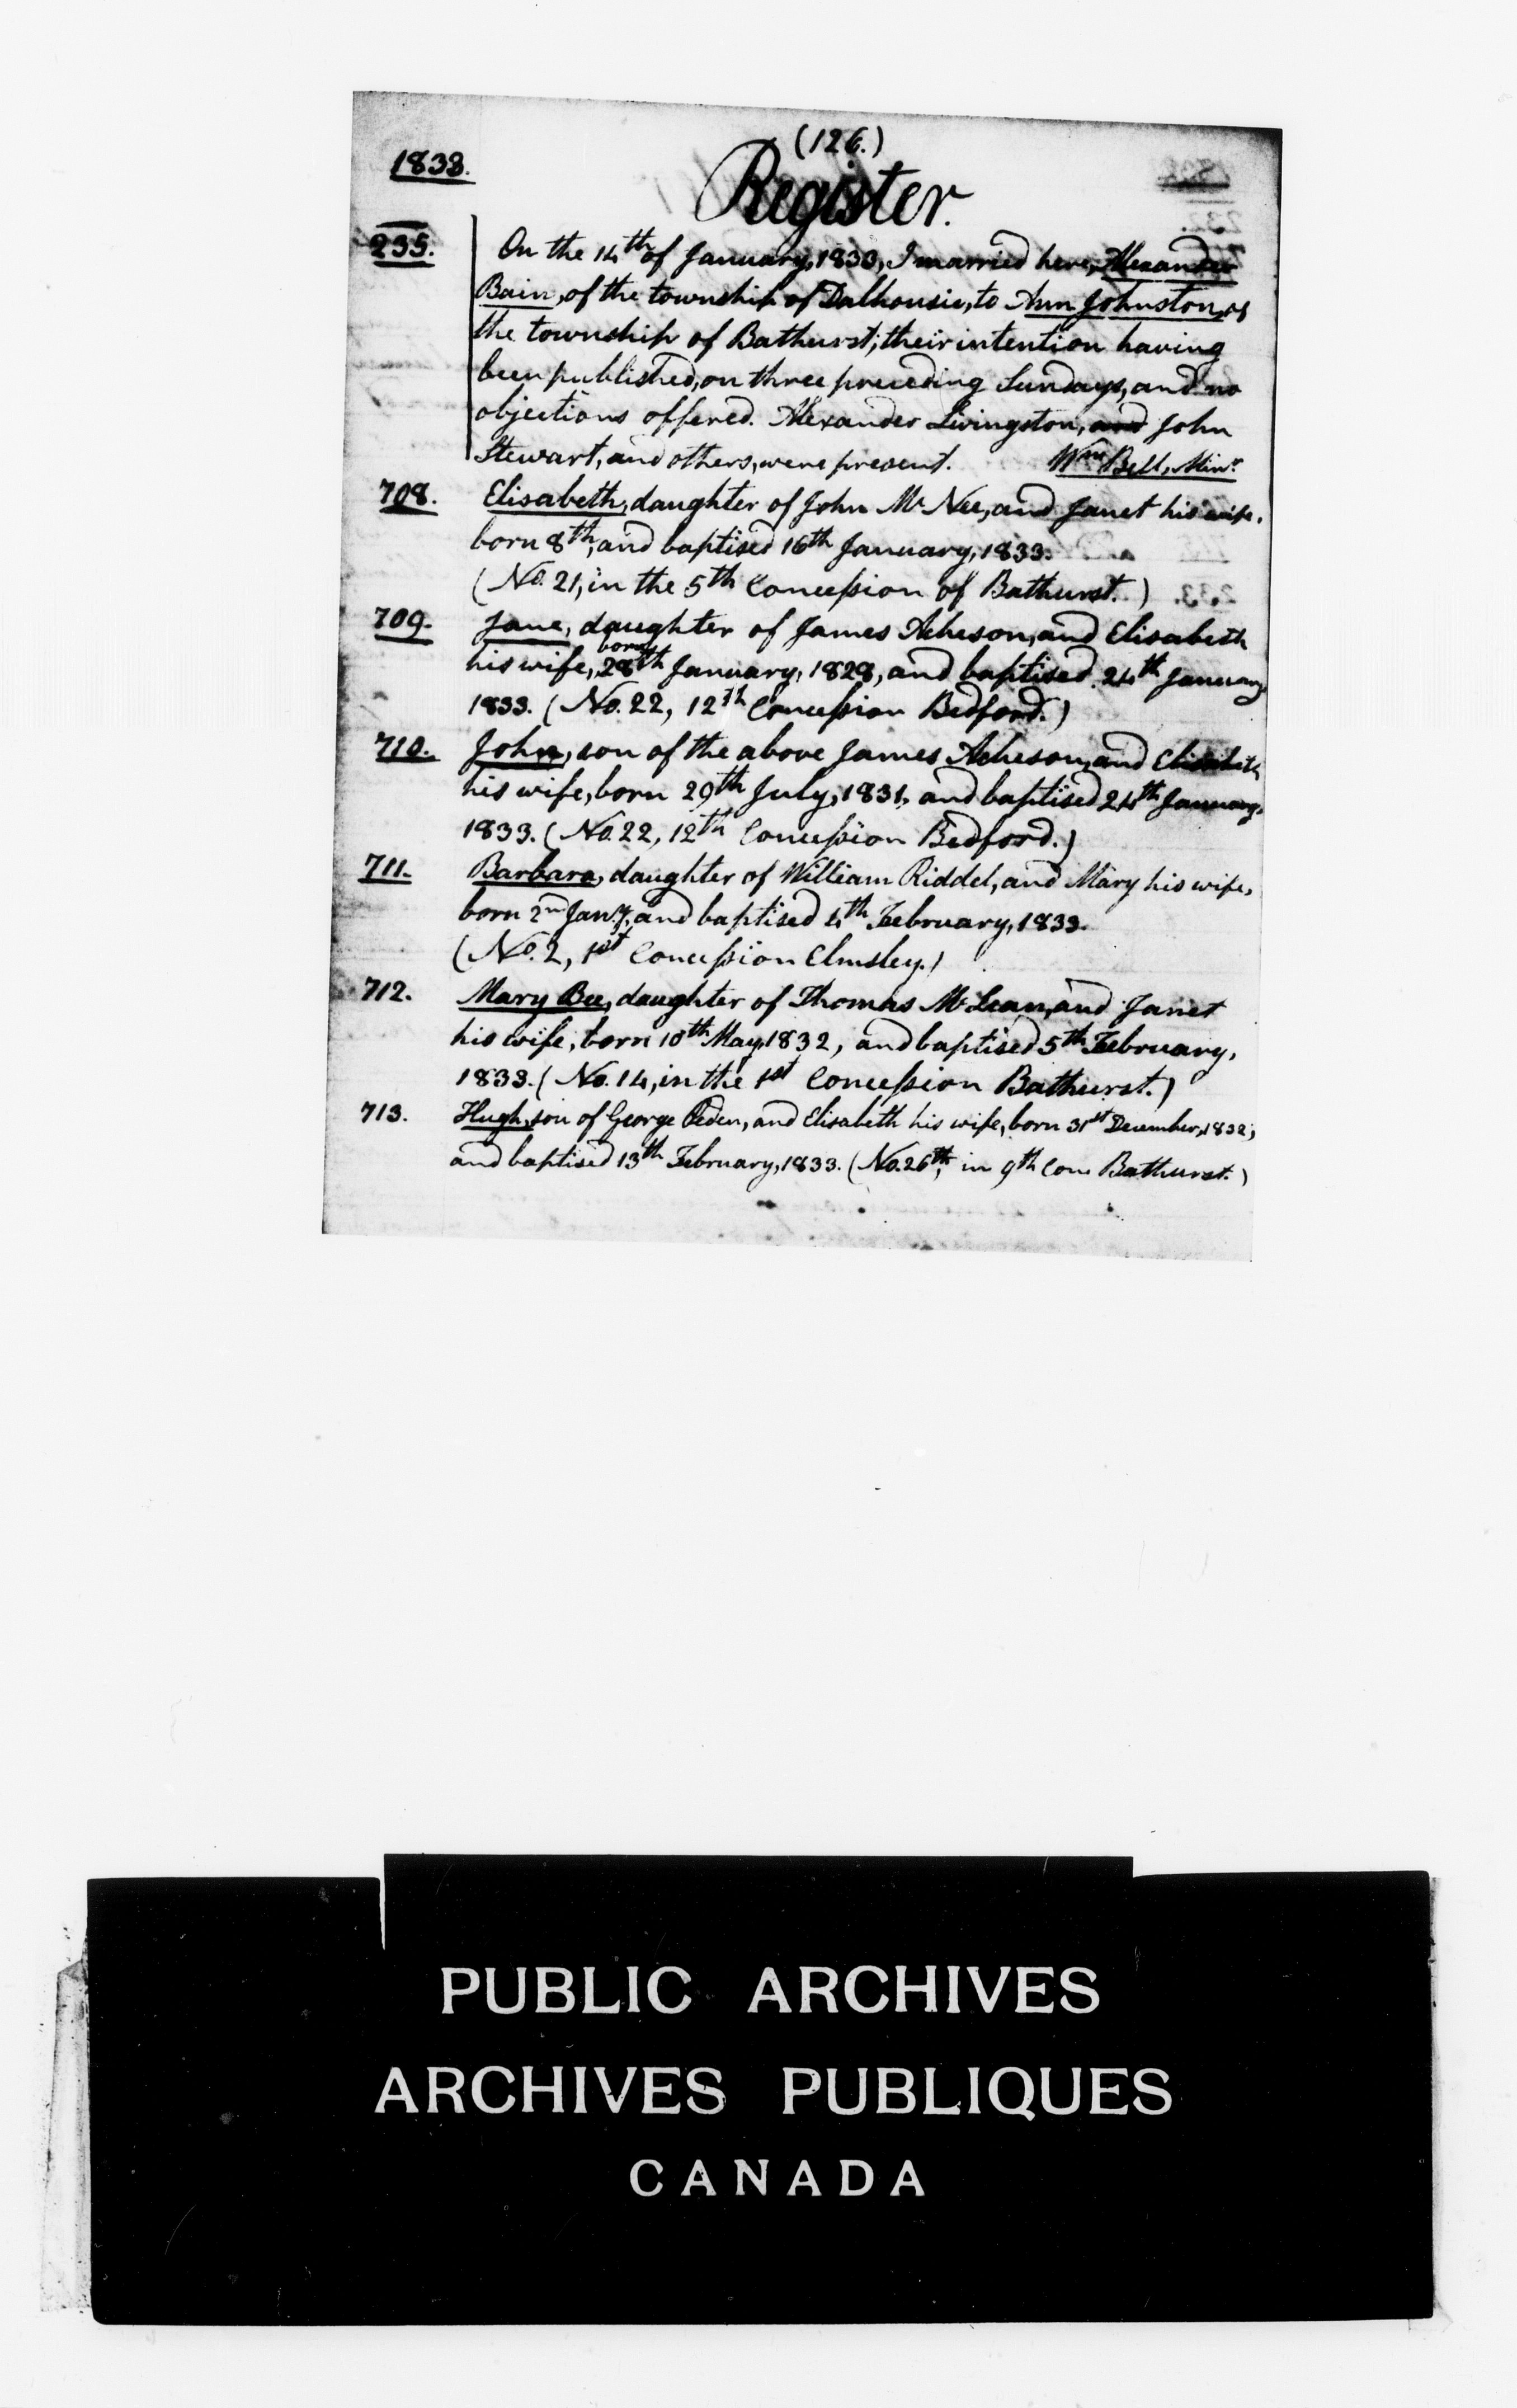 (126.)
1833.
Register.
235.
On the 14th of January, 1833, I married here, Alexander
Bain, of the township of Dalhousie, to Ann Johnston, of
the township of Bathurst; their intention having
been published, on three preceding Sundays, and no
objections offered. Alexander Livingston, and John
Stewart, and others, were present. Wm Bell, Minr.
708. Elisabeth, daughter of John McNee, and Janet his wife,
born 8th, and baptised 16th January, 1833.
(No. 21, in the 5th Concession of Bathurst.)
709. Jane, daughter of James Acheson, and Elisabeth
his wife, born 28th January, 1828, and baptised 24th January
1833. (No. 22, 12th Concession Bedford.)
710. John, son of the above James Acheson, and Elisabeth
his wife, born 29th July, 1831, and baptised 24th January,
1833. (No. 22, 12th Concession Bedford.)
711. Barbara, daughter of William Riddel, and Mary his wife,
born 2nd Jany, and baptised 4th February, 1833.
(No. 2, 1st Concession Elmsley.)
712. Mary Bee, daughter of Thomas McLean, and Janet
his wife, born 10th May, 1832, and baptised 5th February,
1833. (No. 14, in the 1st Concession Bathurst.)
713. Hugh, son of George Peden, and Elisabeth his wife, born 31st December, 1832,
and baptised 13th February, 1833. (No. 26th, in 9th Con Bathurst.)
PUBLIC ARCHIVES
ARCHIVES PUBLIQUES
CANADA